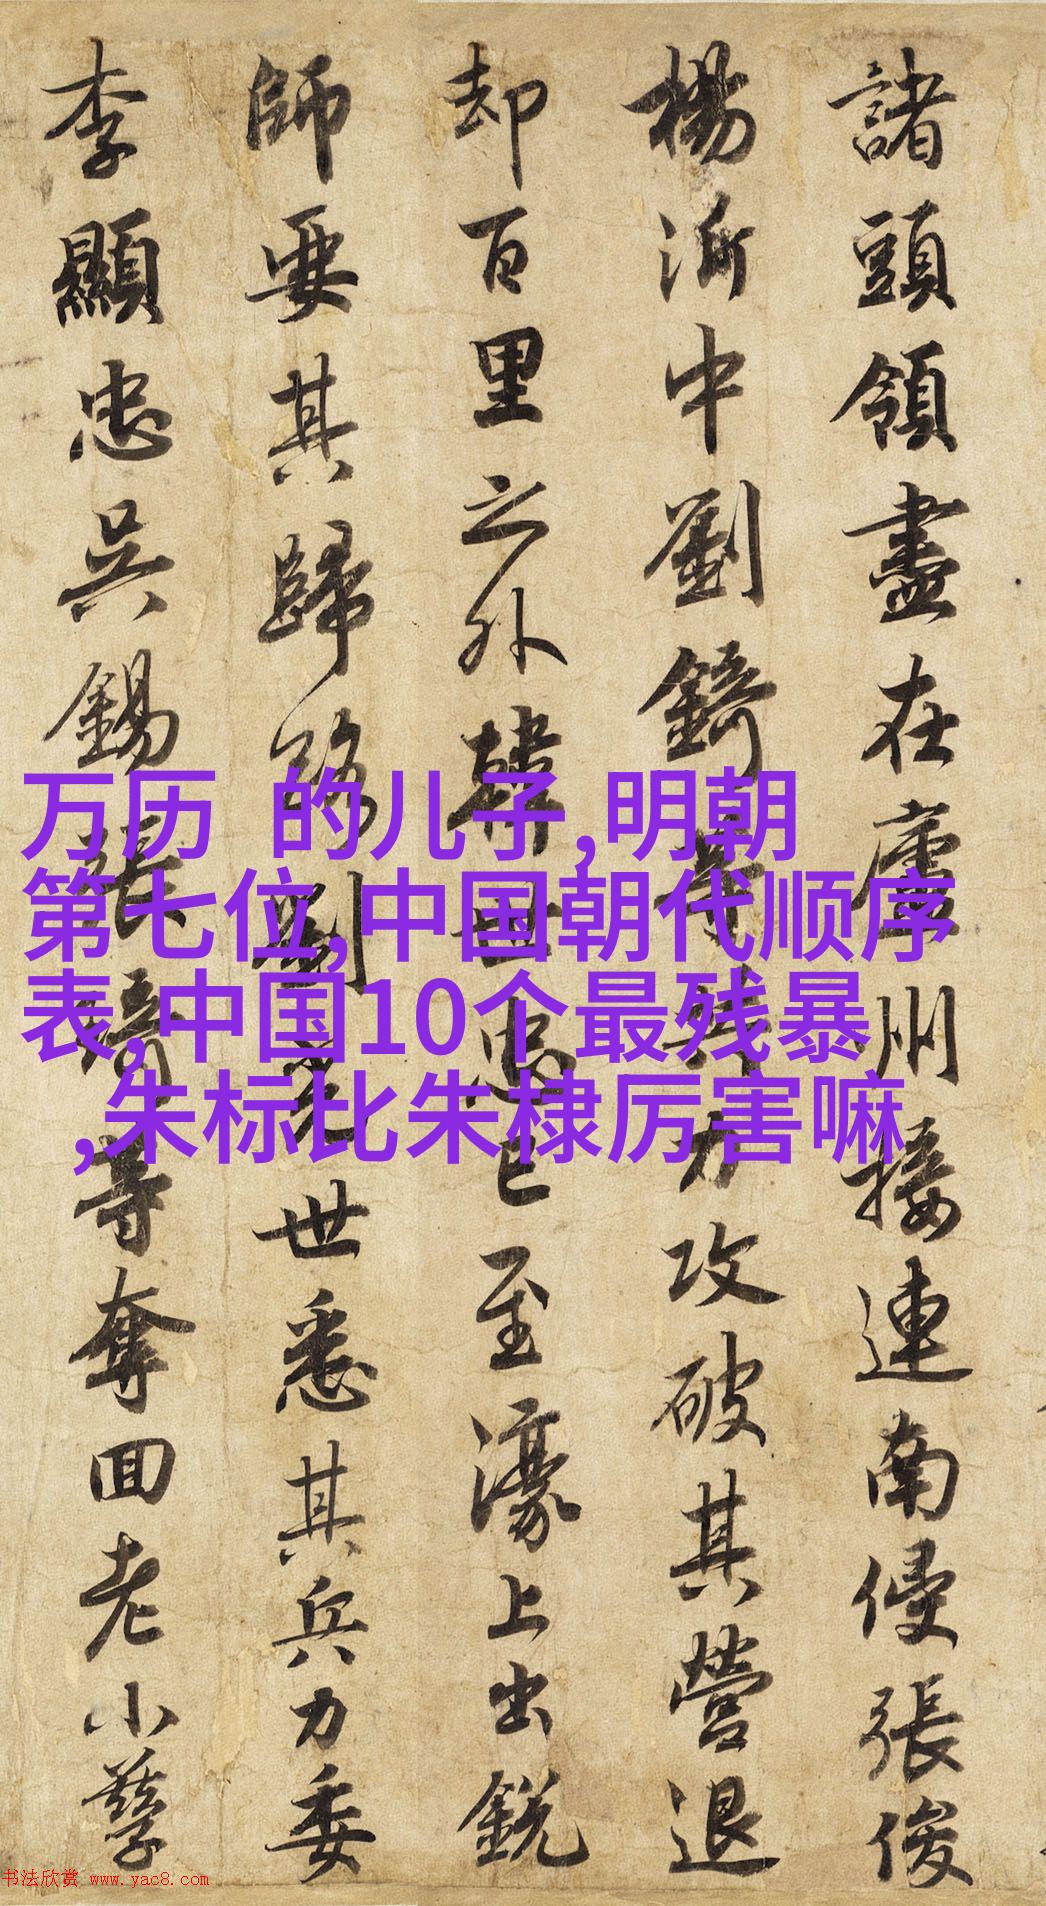 諸頭領盡在廬州接連南侵張俊
楊沂中劉錡等共力攻破其營退
却百里之外韓世忠已至濠上出銳
師要其歸路劉光世悉其兵力委
李顯忠吳錫張琦等奪回老小孳
万历 的儿子,明朝
第七位,中国朝代顺序
表,中国10个最残暴
,朱标比朱棣厉害嘛
书法欣赏 www.yac8.com